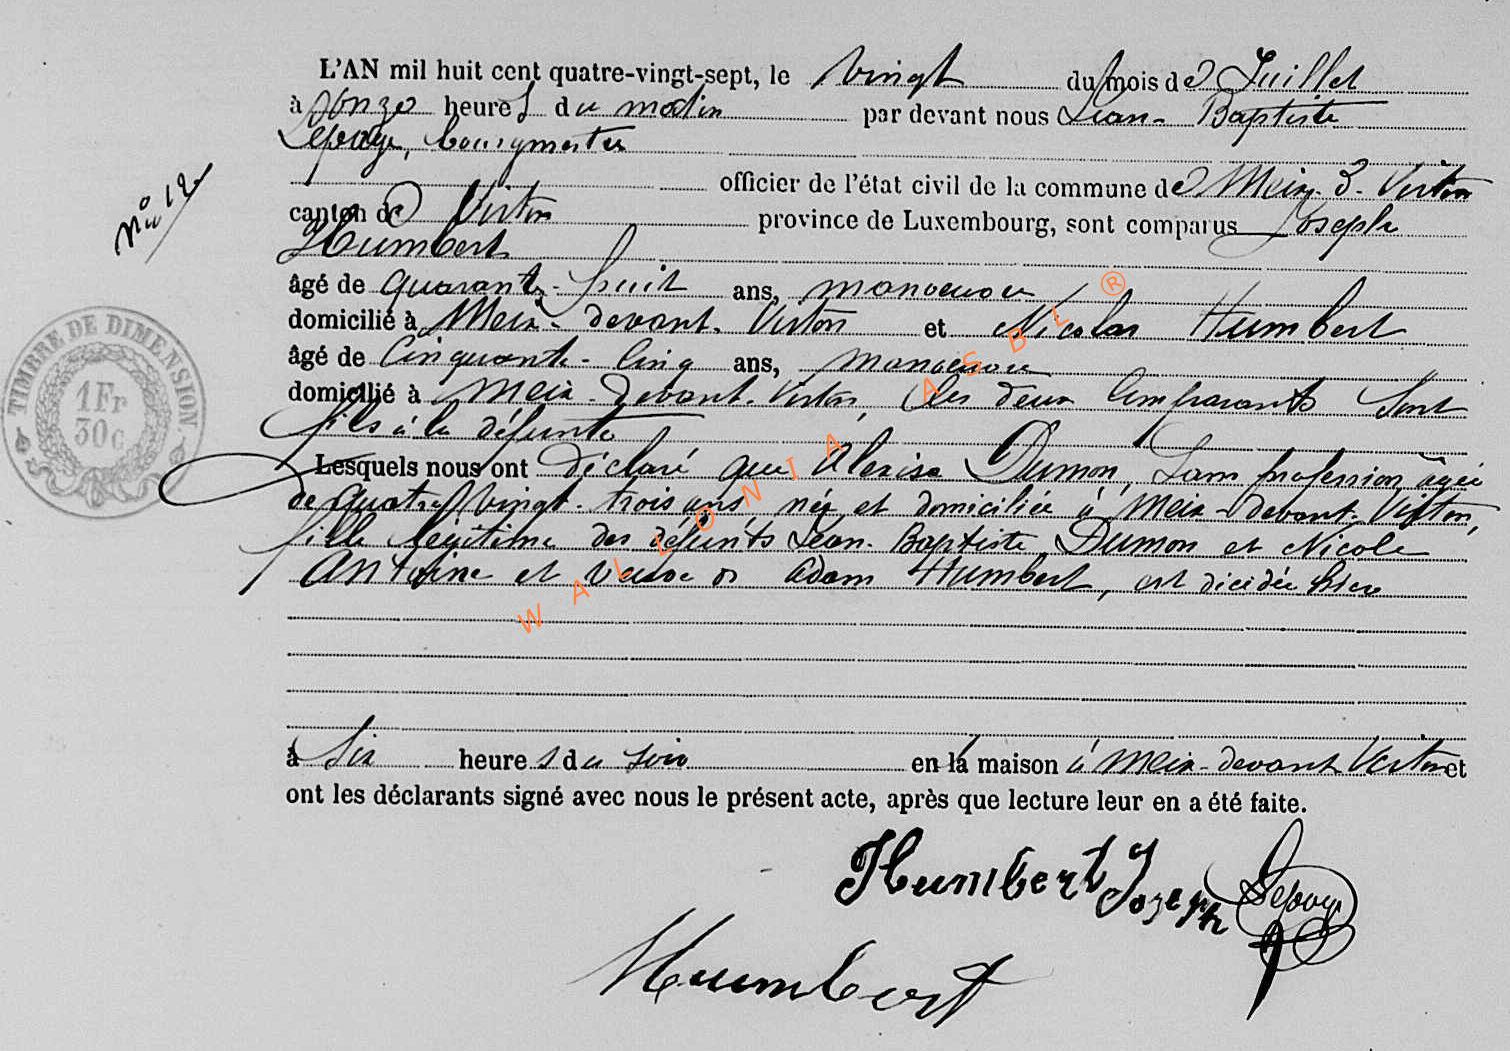 L'AN mil huit cent quatre-vingt-sept, le vingt du mois de Juillet
à onze heures du matin par devant nous Jean-Baptiste
Lepage, bourgmestre
officier de l'état civil de la commune de Meix-d-Virton
N° 12
canton de Virton province de Luxembourg, sont comparus Joseph
Humbert
âgé de quarante-huit ans, manoeuvre
domicilié à Meix-devant-Virton et Nicolas Humbert
âgé de cinquante-cinq ans, manoeuvre
domicilié à Meix-devant-Virton, les deux comparants sont
fils à la défunte
Lesquels nous ont déclaré que Alexise Dumon, sans profession âgée
de quatre vingt-trois ans née et domiciliée à Meix-devant-Virton,
fille légitime des défunts Jean-Baptiste Dumon et Nicole
Antoine et veuve de Adam Humbert, est décédée hier
à six heures du soir en la maison à Meix-devant Virton et
ont les déclarants signé avec nous le présent acte, après que lecture leur en a été faite.
Humbert Joseph Lepage
Humbert
TIMBRE DE DIMENSION
1 Fr
30 c
WALLONIA ASBL ®